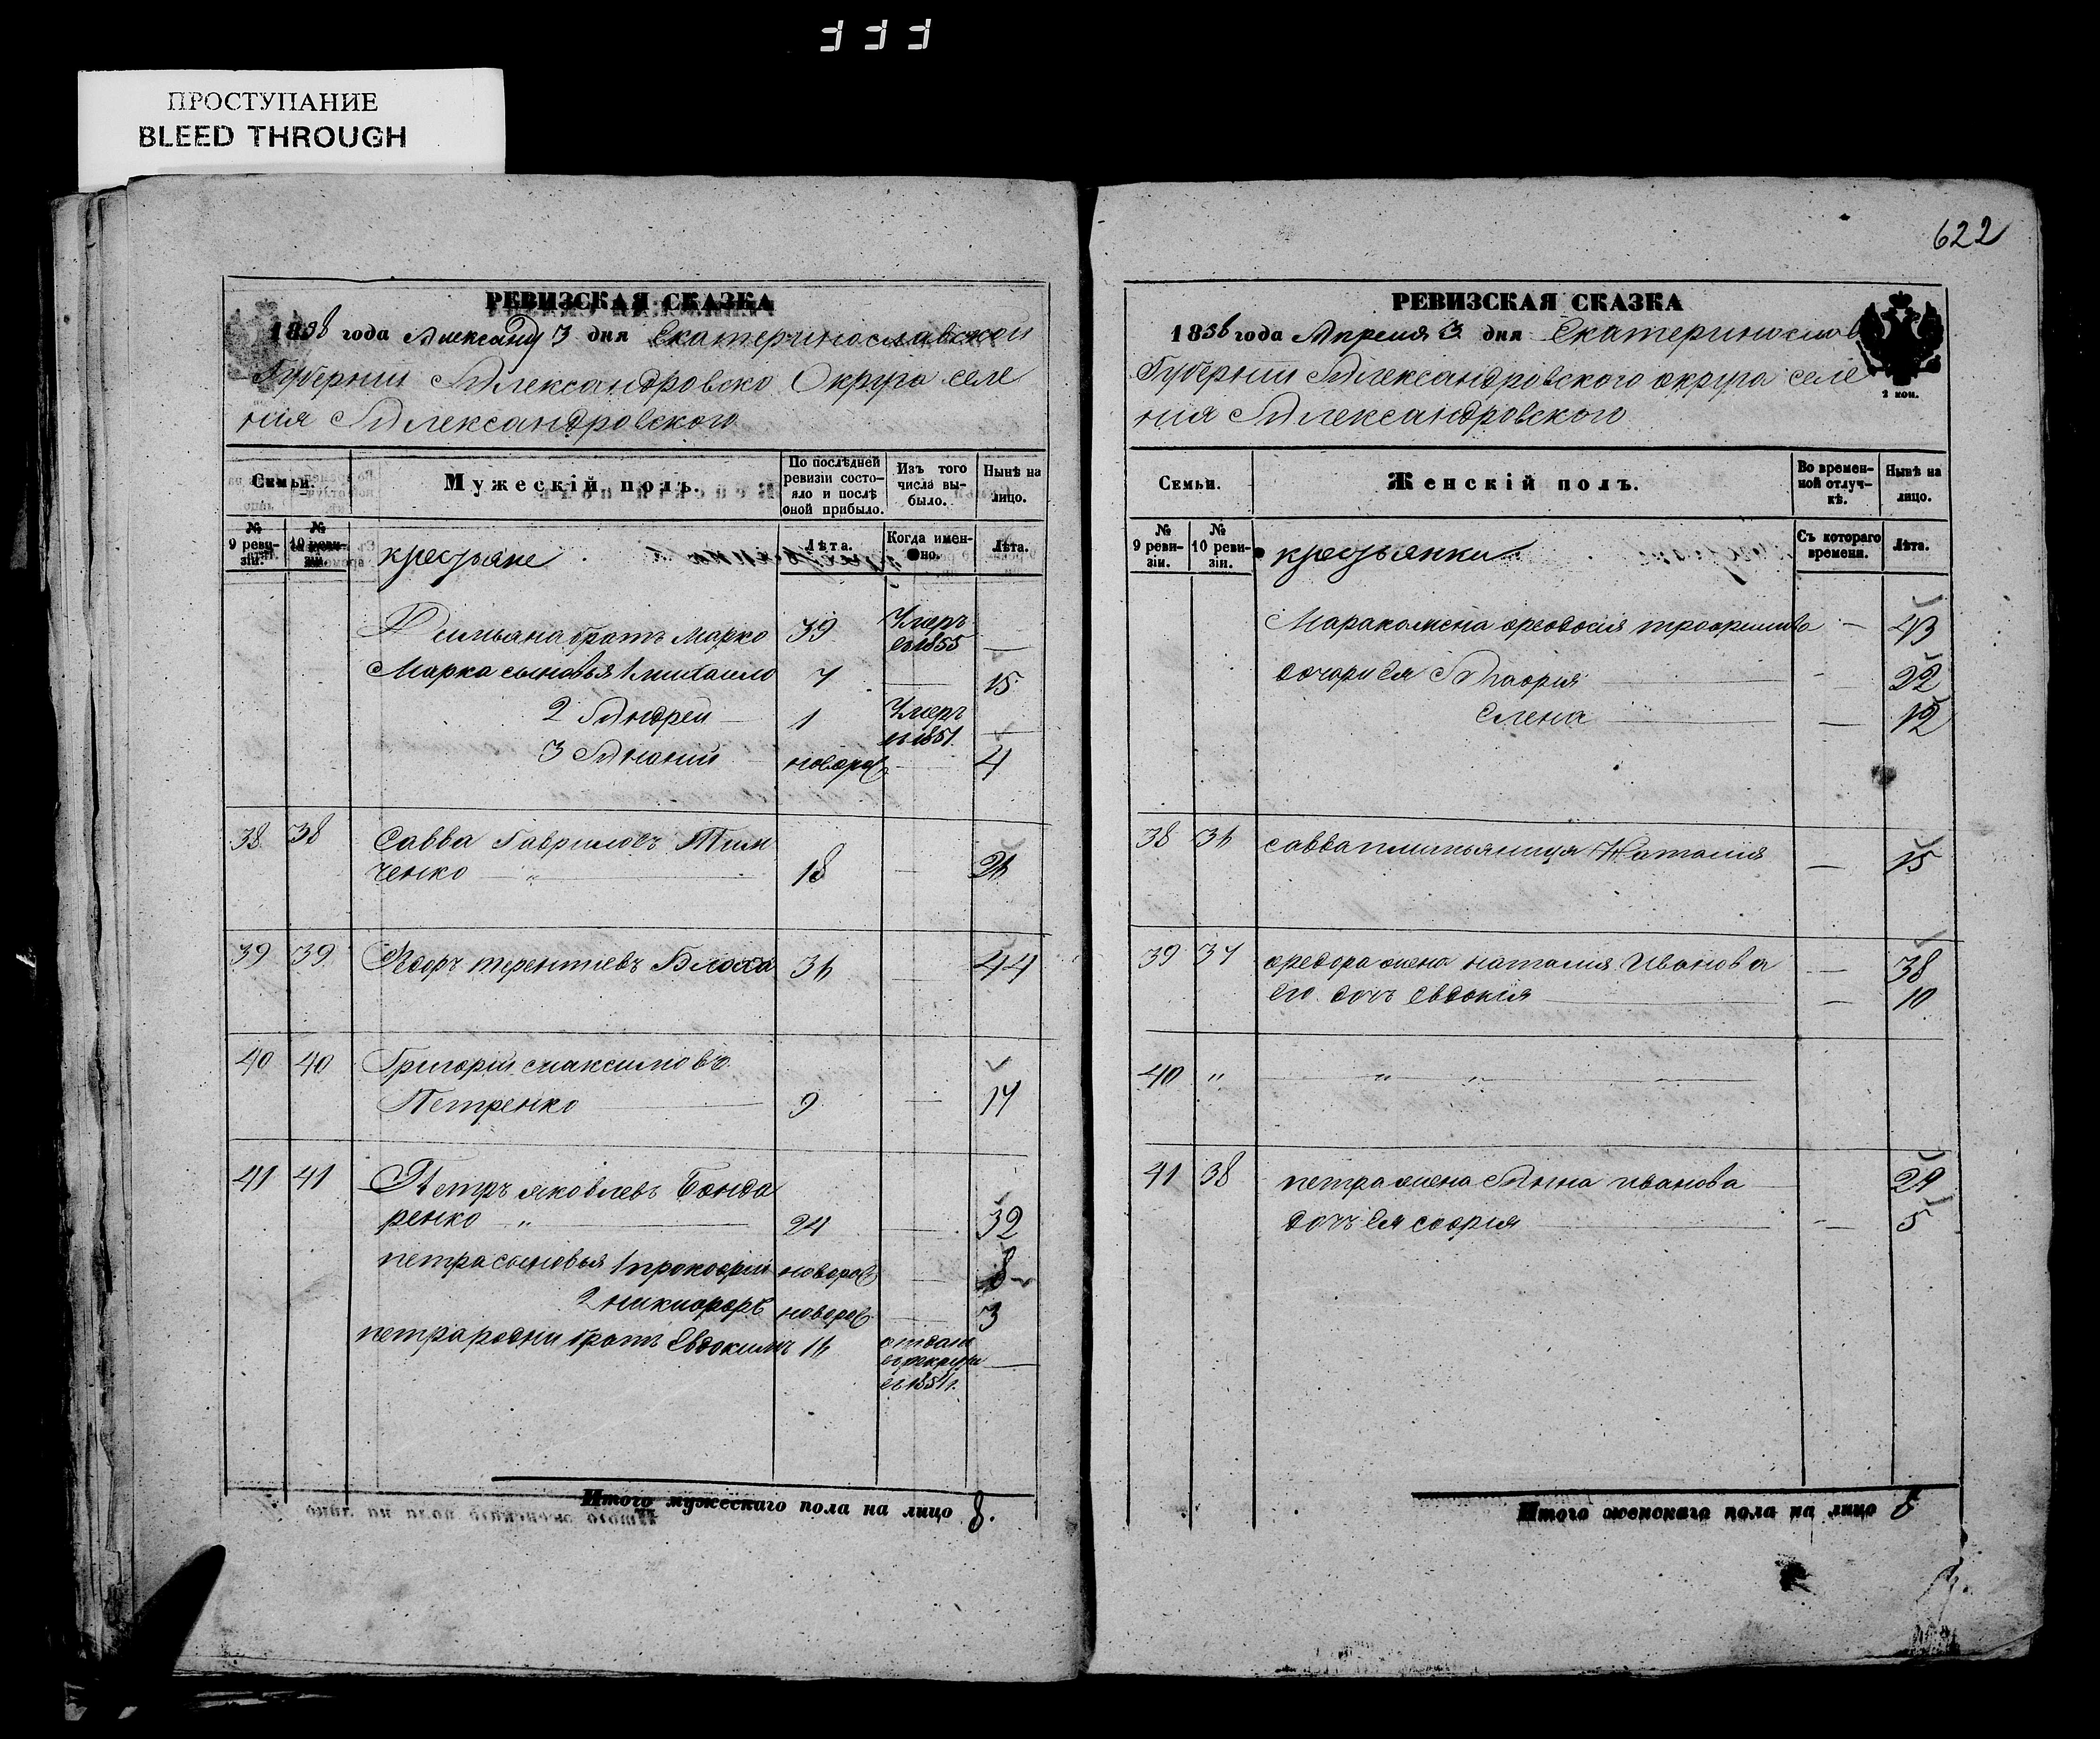 ПРОСТУПАНИЕ
BLEED THROUGH
622
РЕВИЗСКАЯ СКАЗКА
1858 года 3 дня Екатеринославской
Губернии Александровско Округа селе
ния Александровского
Семьи.
Мужескій полъ.
По послѣдней ревизіи состояло и послѣ оной прибыло.
Изъ того числа выбыло.
Нынѣ на лицо.
№ 9 ревизіи.
№ 10 ревизіи.
крестьяне
Лѣта.
Когда именно.
Лѣта.
братъ Марко 39 Умеръ въ 1855 —
Марка сыновья 1 михаило 7 — 15
2 Андрей — 1 Умеръ въ 1851 —
3 Ананий новорож — 4
38 38 Савва Гавриловъ Тим
ченко — 18 —
39 39 Терентиевъ Блоха —  44
40 40 Григорій Максимовъ
Петренко 9 — 17
41 41 Петръ яковлевъ Бонда
ренко — " 24 — 32
петра сыновья 1 прокофий новорож — 8
2 никифоръ новорож — 3
петра родни братъ Евдокимъ отдан
въ рекруты —
Итого мужескаго пола на лицо 8.
РЕВИЗСКАЯ СКАЗКА
1858 года Апреля 3 дня Екатеринослав
Губернии Александровского округа селе
ния Александровского
2 коп.
Семьи.
Женскій полъ.
Во временной отлучкѣ.
Нынѣ на лицо.
№ 9 ревизіи.
№ 10 ревизіи.
крестьянки
Съ котораго времени.
Лѣта.
Марка жена феодосия — 43
дочери ея — 22
Елена — 12
38 Наталия — 15
39 37 федора жена наталия Иванова — 38
его дочь Евдокия — 10
40 " — " — " —
41 38 петра жена Анна иванова 29
дочь ея софия — 5
Итого женскаго пола на лицо 8